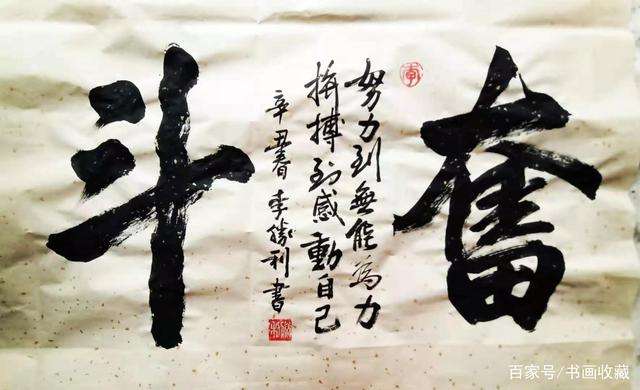 奮
努力到無能為力
拚搏到感動自己
辛丑春 李勝利書
斗
百家号/书画收藏